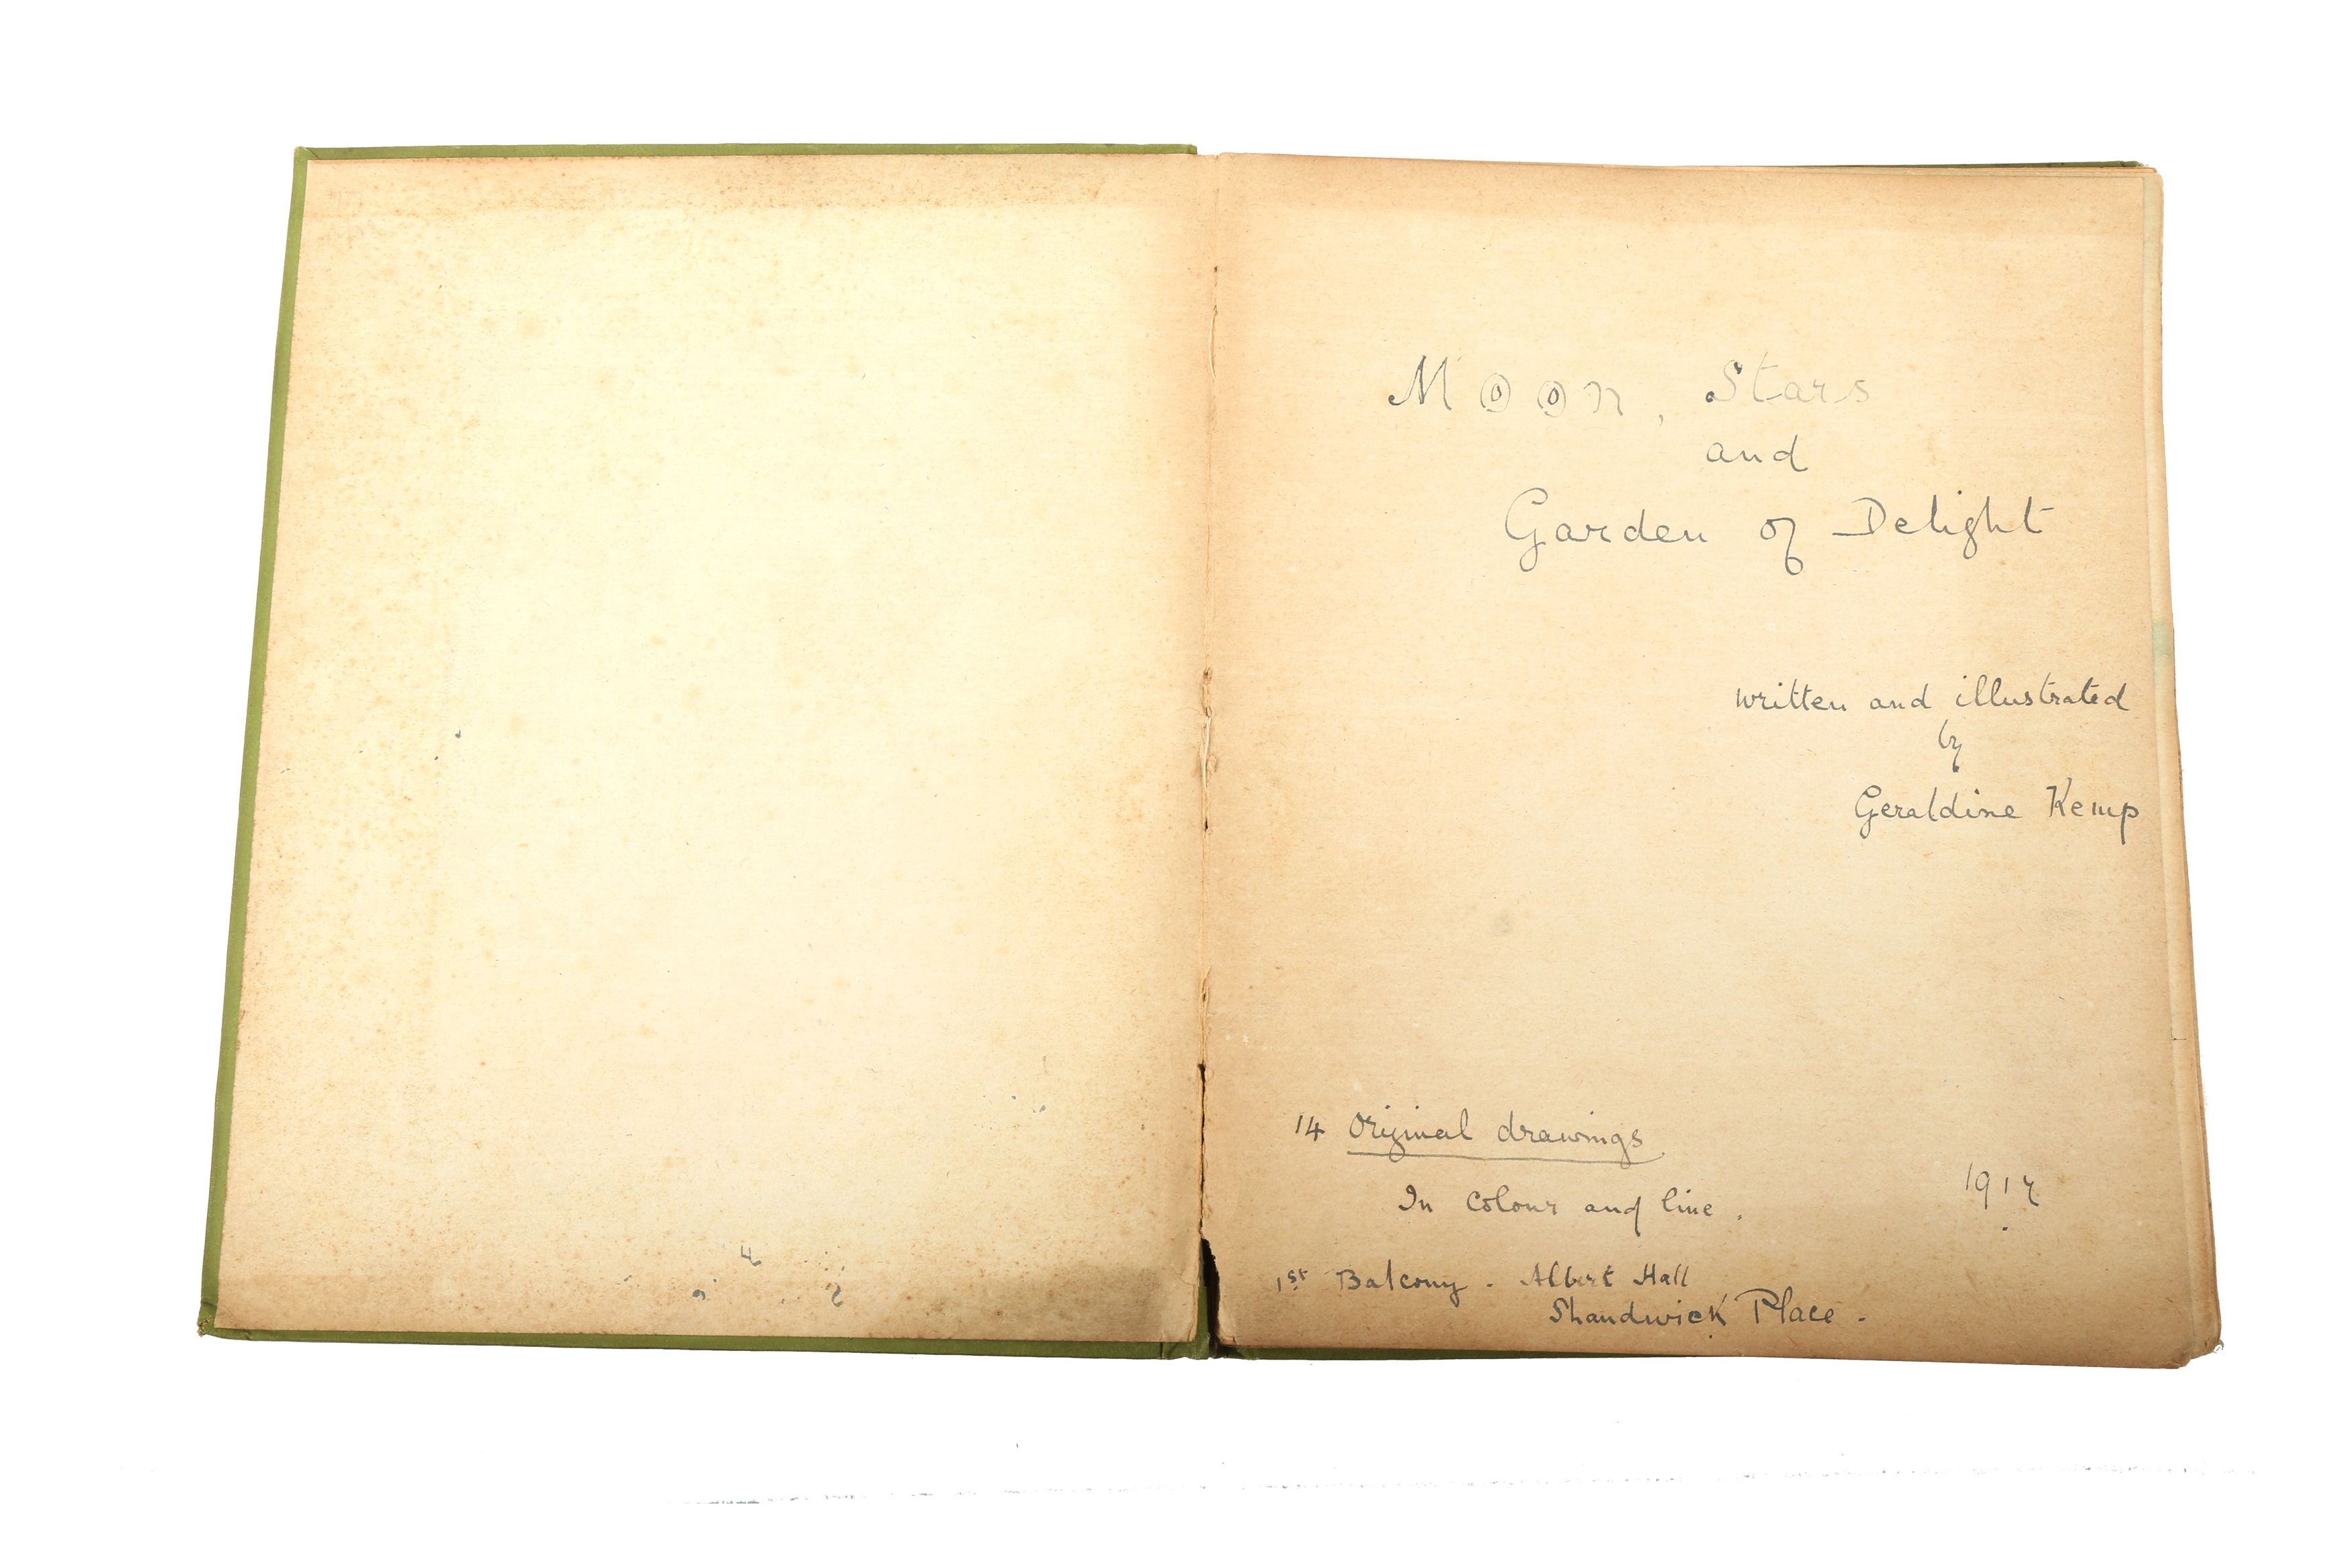 Moon, Stars
and
Garden of Delight
written and illustrated
by
Geraldine Kemp
14 Original drawings
In Colour and line.
1917
1st Balcony - Albert Hall
Shandwick Place -